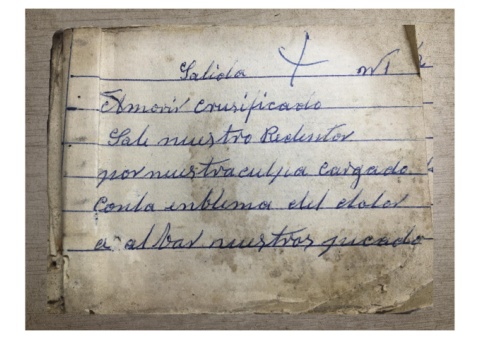 Salida X Nº 1
Amorir crusificado
Sale nuestro Redentor
por nuestraculpa cargado
conla inblema del dolor
a albar nuestros pecado